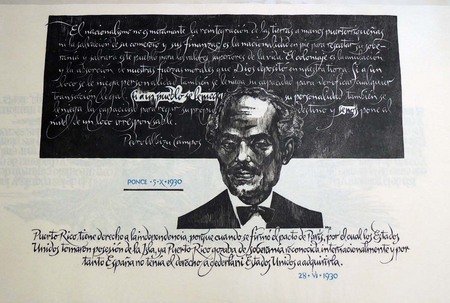 El nacionalismo no es meramente la reintegración de las tierras a manos puertorriqueñas
ni la salvación de su comercio y sus finanzas; es la nacionalidad en pie para rescatar su sobe-
ranía y salvar este pueblo para los valores superiores de la vida. El coloniaje es la
y la absorción de nuestras fuerzas morales que Dios depositó en nuestra tierra. Si a un
loco se le niega personalidad también se le niega la capacidad para
si a un pueblo se le niega su personalidad también se
le niega la capacidad para regir su propio destino y se nos pone al
nivel de un loco irresponsable.
Pedro Albizu Campos
PONCE • 5 • X • 1930
Puerto Rico tiene derecho a la independencia, porque cuando se firmó el pacto de París, por el cual los Estados
Unidos tomaron posesión de la Isla, ya Puerto Rico gozaba de soberanía reconocida internacionalmente y por
tanto España no tenía el derecho a cederla ni Estados Unidos a adquirirla.
28 • VI • 1930